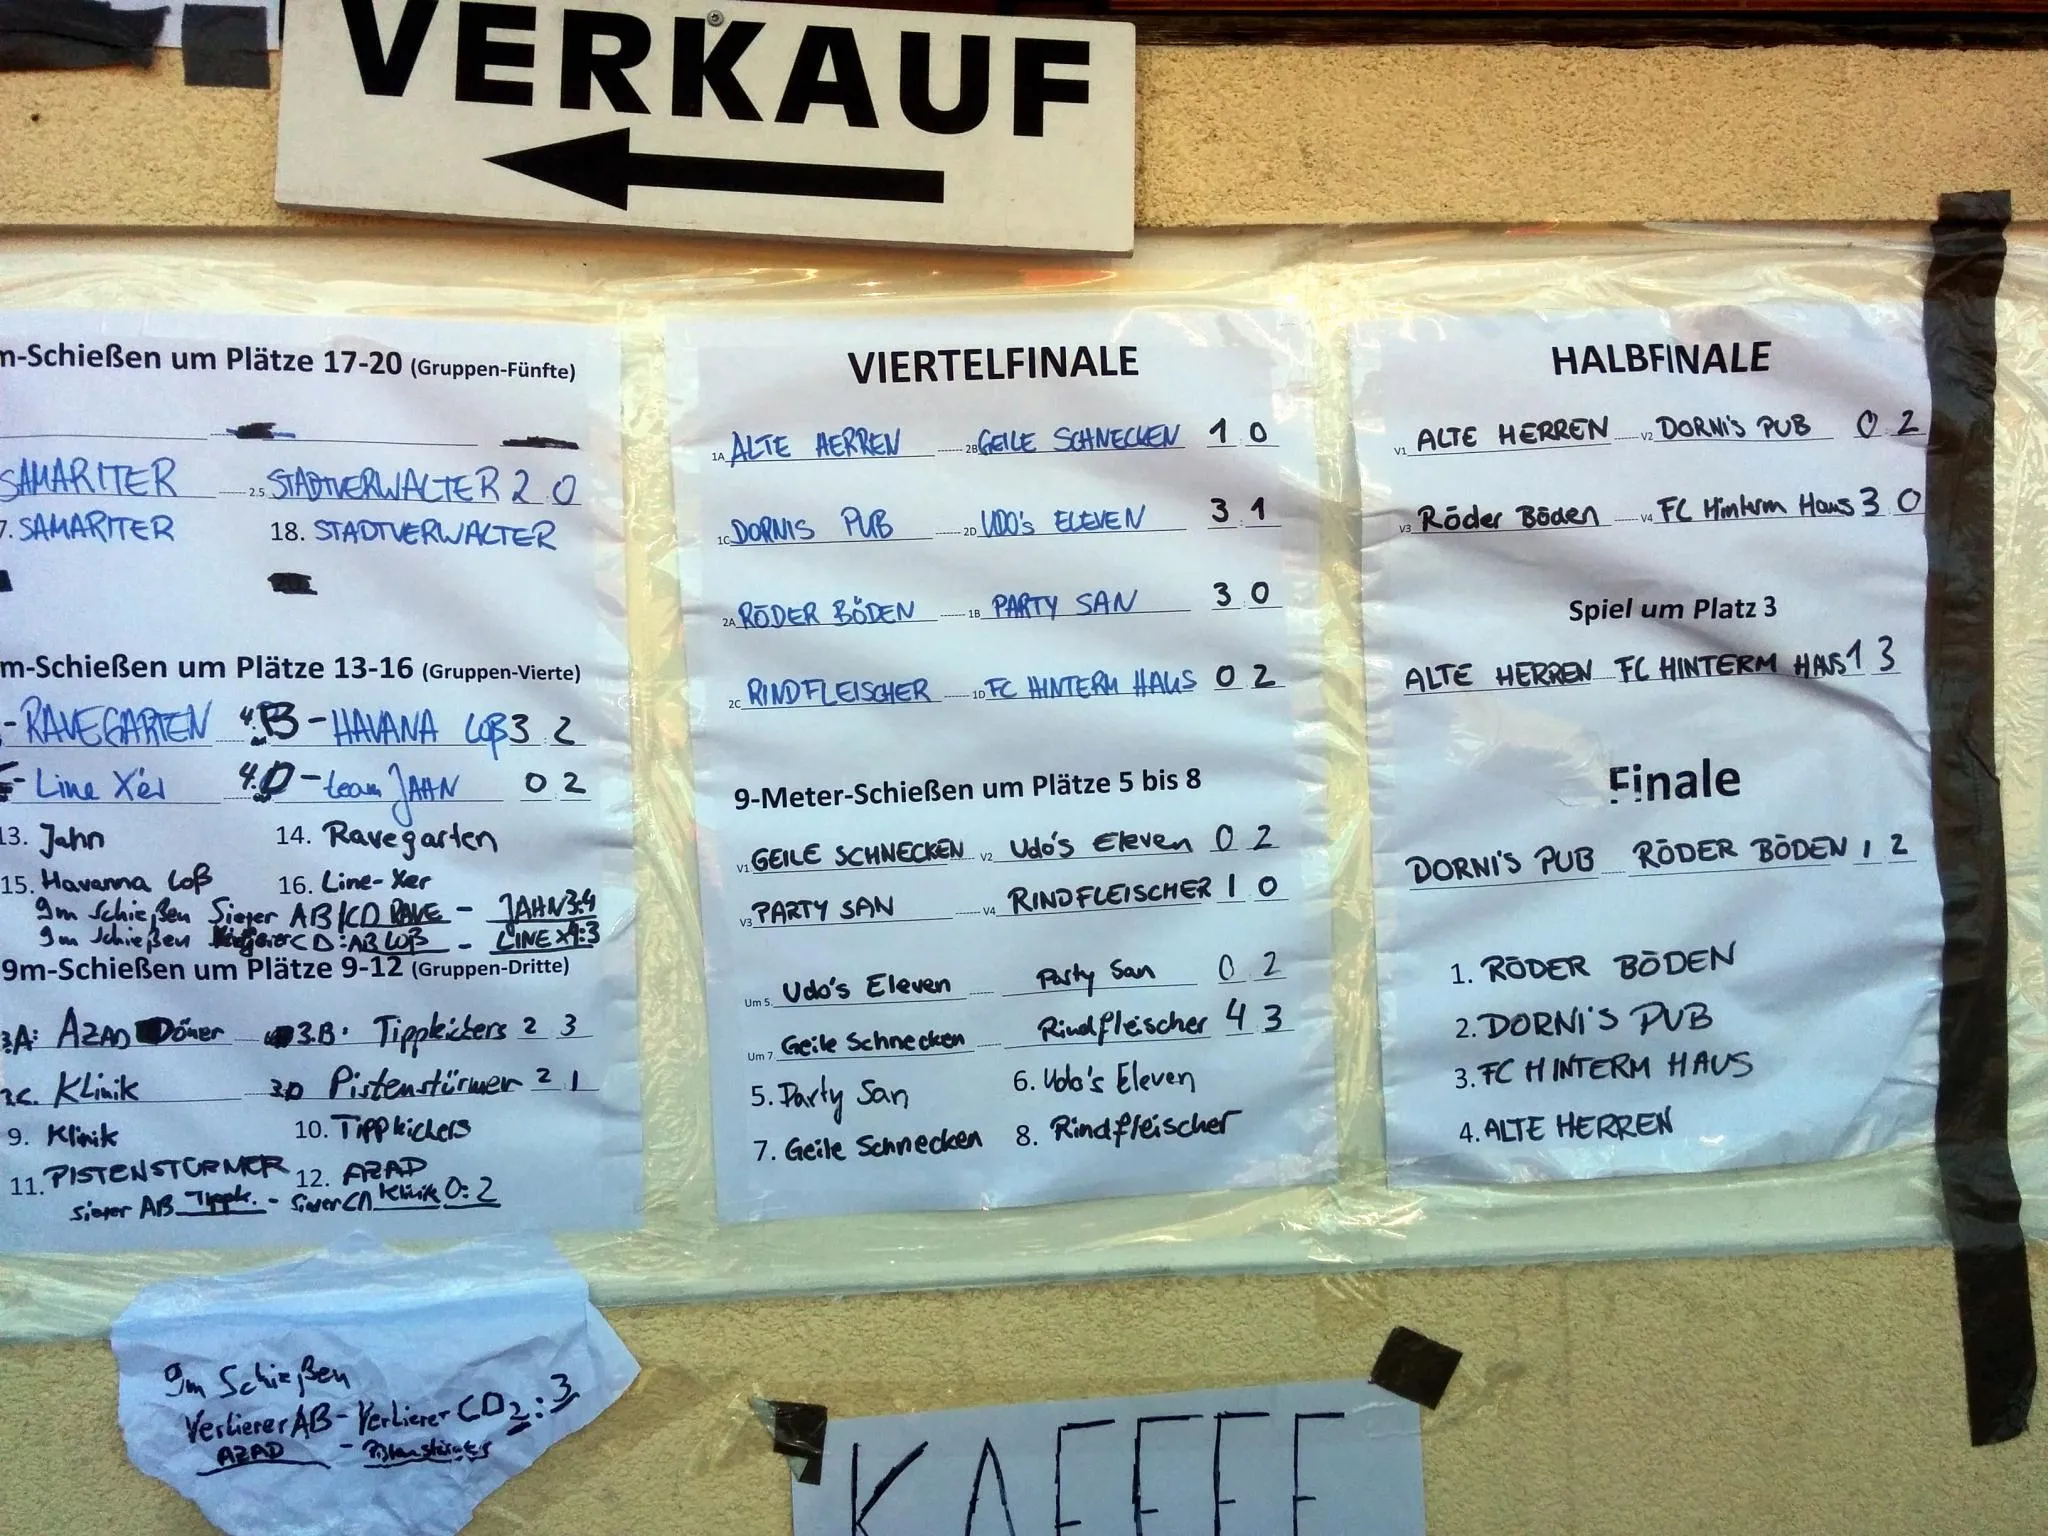 VERKAUF
m-Schießen um Plätze 17-20 (Gruppen-Fünfte)
SAMARITER 2.5 STADTVERWALTER 2 0
7. SAMARITER 18. STADTVERWALTER
m-Schießen um Plätze 13-16 (Gruppen-Vierte)
- RAVEGARTEN 4.B - HAVANA LOß 3 2
- Line Xer 4.D - team JAHN 0 2
13. Jahn 14. Ravegarten
15. Havanna Loß 16. Line-Xer
9m Schießen Sieger AB/CD RAVE - JAHN 3:4
9m Schießen CD:AB LOß - LINE X 4:3
9m-Schießen um Plätze 9-12 (Gruppen-Dritte)
3A: AZAD Döner 3.B. Tippkickers 2 3
3C. Klinik 3D Pistenstürmer 2 1
9. Klinik 10. Tippkickers
11. PISTENSTÜRMER 12. AZAD
Sieger AB Tippk. - Sieger CD Klinik 0:2
9m Schießen
Verlierer AB - Verlierer CD 2:3
AZAD - Pistenstürmer
VIERTELFINALE
1A ALTE HERREN 2B GEILE SCHNECKEN 1 0
1C DORNIS PUB 2D UDO's ELEVEN 3 1
2A RÖDER BÖDEN 1B PARTY SAN 3 0
2C RINDFLEISCHER 1D FC HINTERM HAUS 0 2
9-Meter-Schießen um Plätze 5 bis 8
V1 GEILE SCHNECKEN V2 Udo's Eleven 0 2
V3 PARTY SAN V4 RINDFLEISCHER 1 0
Um 5. Udo's Eleven Party San 0 2
Um 7 Geile Schnecken Rindfleischer 4 3
5. Party San 6. Udo's Eleven
7. Geile Schnecken 8. Rindfleischer
HALBFINALE
V1 ALTE HERREN V2 DORNI'S PUB 0 2
V3 Röder Böden V4 FC Hinterm Haus 3 0
Spiel um Platz 3
ALTE HERREN FC HINTERM HAUS 1 3
Finale
DORNI'S PUB RÖDER BÖDEN 1 2
1. RÖDER BÖDEN
2. DORNI'S PUB
3. FC HINTERM HAUS
4. ALTE HERREN
KAFFEE